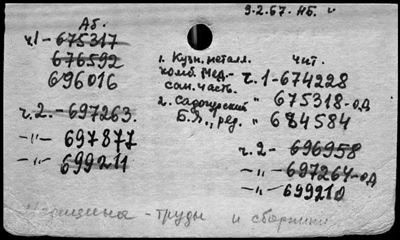 9-2.67. Нб. "
Аб.
ч1 - 675317
676592
696016
ч.2. - 697263.
-"- 697877
-"- 699211
1. Кузн. металл.
комб. Мед.-
сан. часть.
2. Садогурский
Б.Я., ред.
Чит.
ч.1-674228
" 675318-од
" 684584
ч.2- 696958
-"- 697264-од
-"- 699210
Медицина - труды и сборники